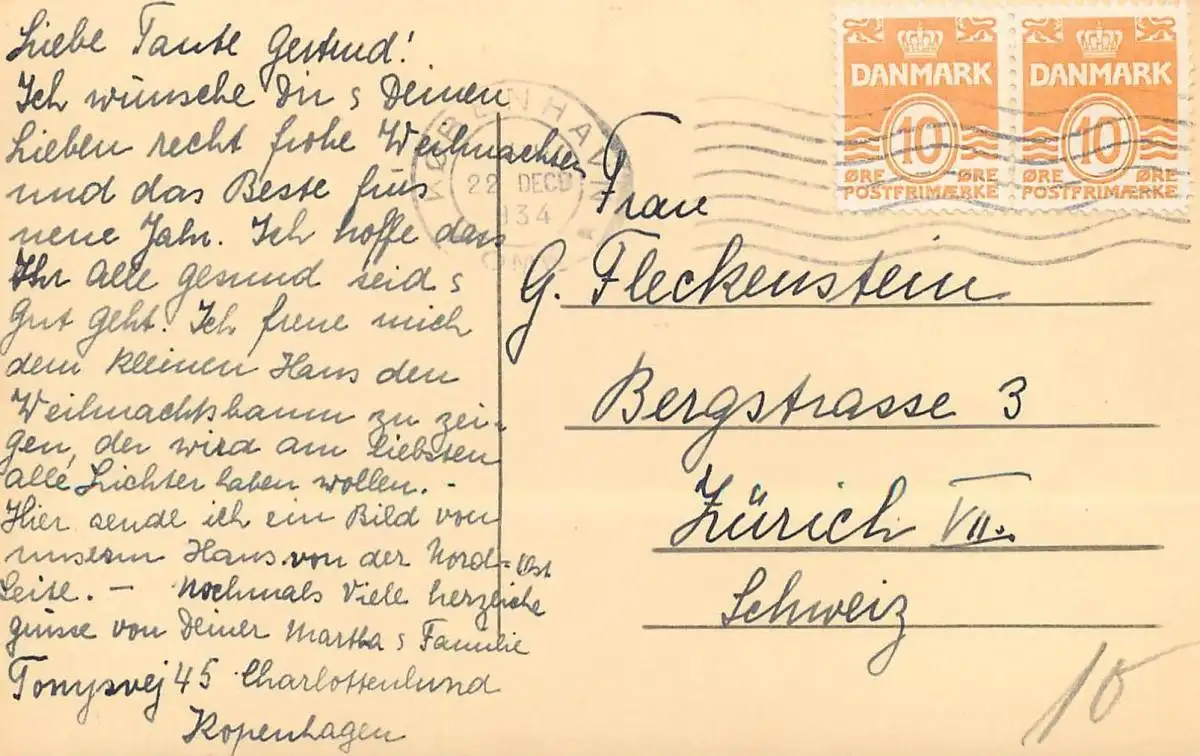 Liebe Tante Gertrud!
Ich wünsche Dir s Deinen
Lieben recht frohe Weihnachten
und das Beste fürs
neue Jahr. Ich hoffe dass
Ihr alle gesund seid s
Gut geht. Ich freue mich
dem kleinen Hans den
Weihnachtsbaum zu zei-
gen, der wird am liebsten
alle Lichter haben wollen. -
Hier sende ich ein Bild von
unserm Haus von der Nord-Ost
Seite. - Nochmals Viele herzliche
grüsse von Deiner Martha s Familie
Tonysvej 45 Charlottenlund
Kopenhagen
KØBENHAVN
22 DECB
1934
OMK
DANMARK
10
ØRE ØRE
POSTFRIMÆRKE
DANMARK
10
ØRE ØRE
POSTFRIMÆRKE
Frau
G. Fleckenstein
Bergstrasse 3
Zürich VII.
Schweiz
10